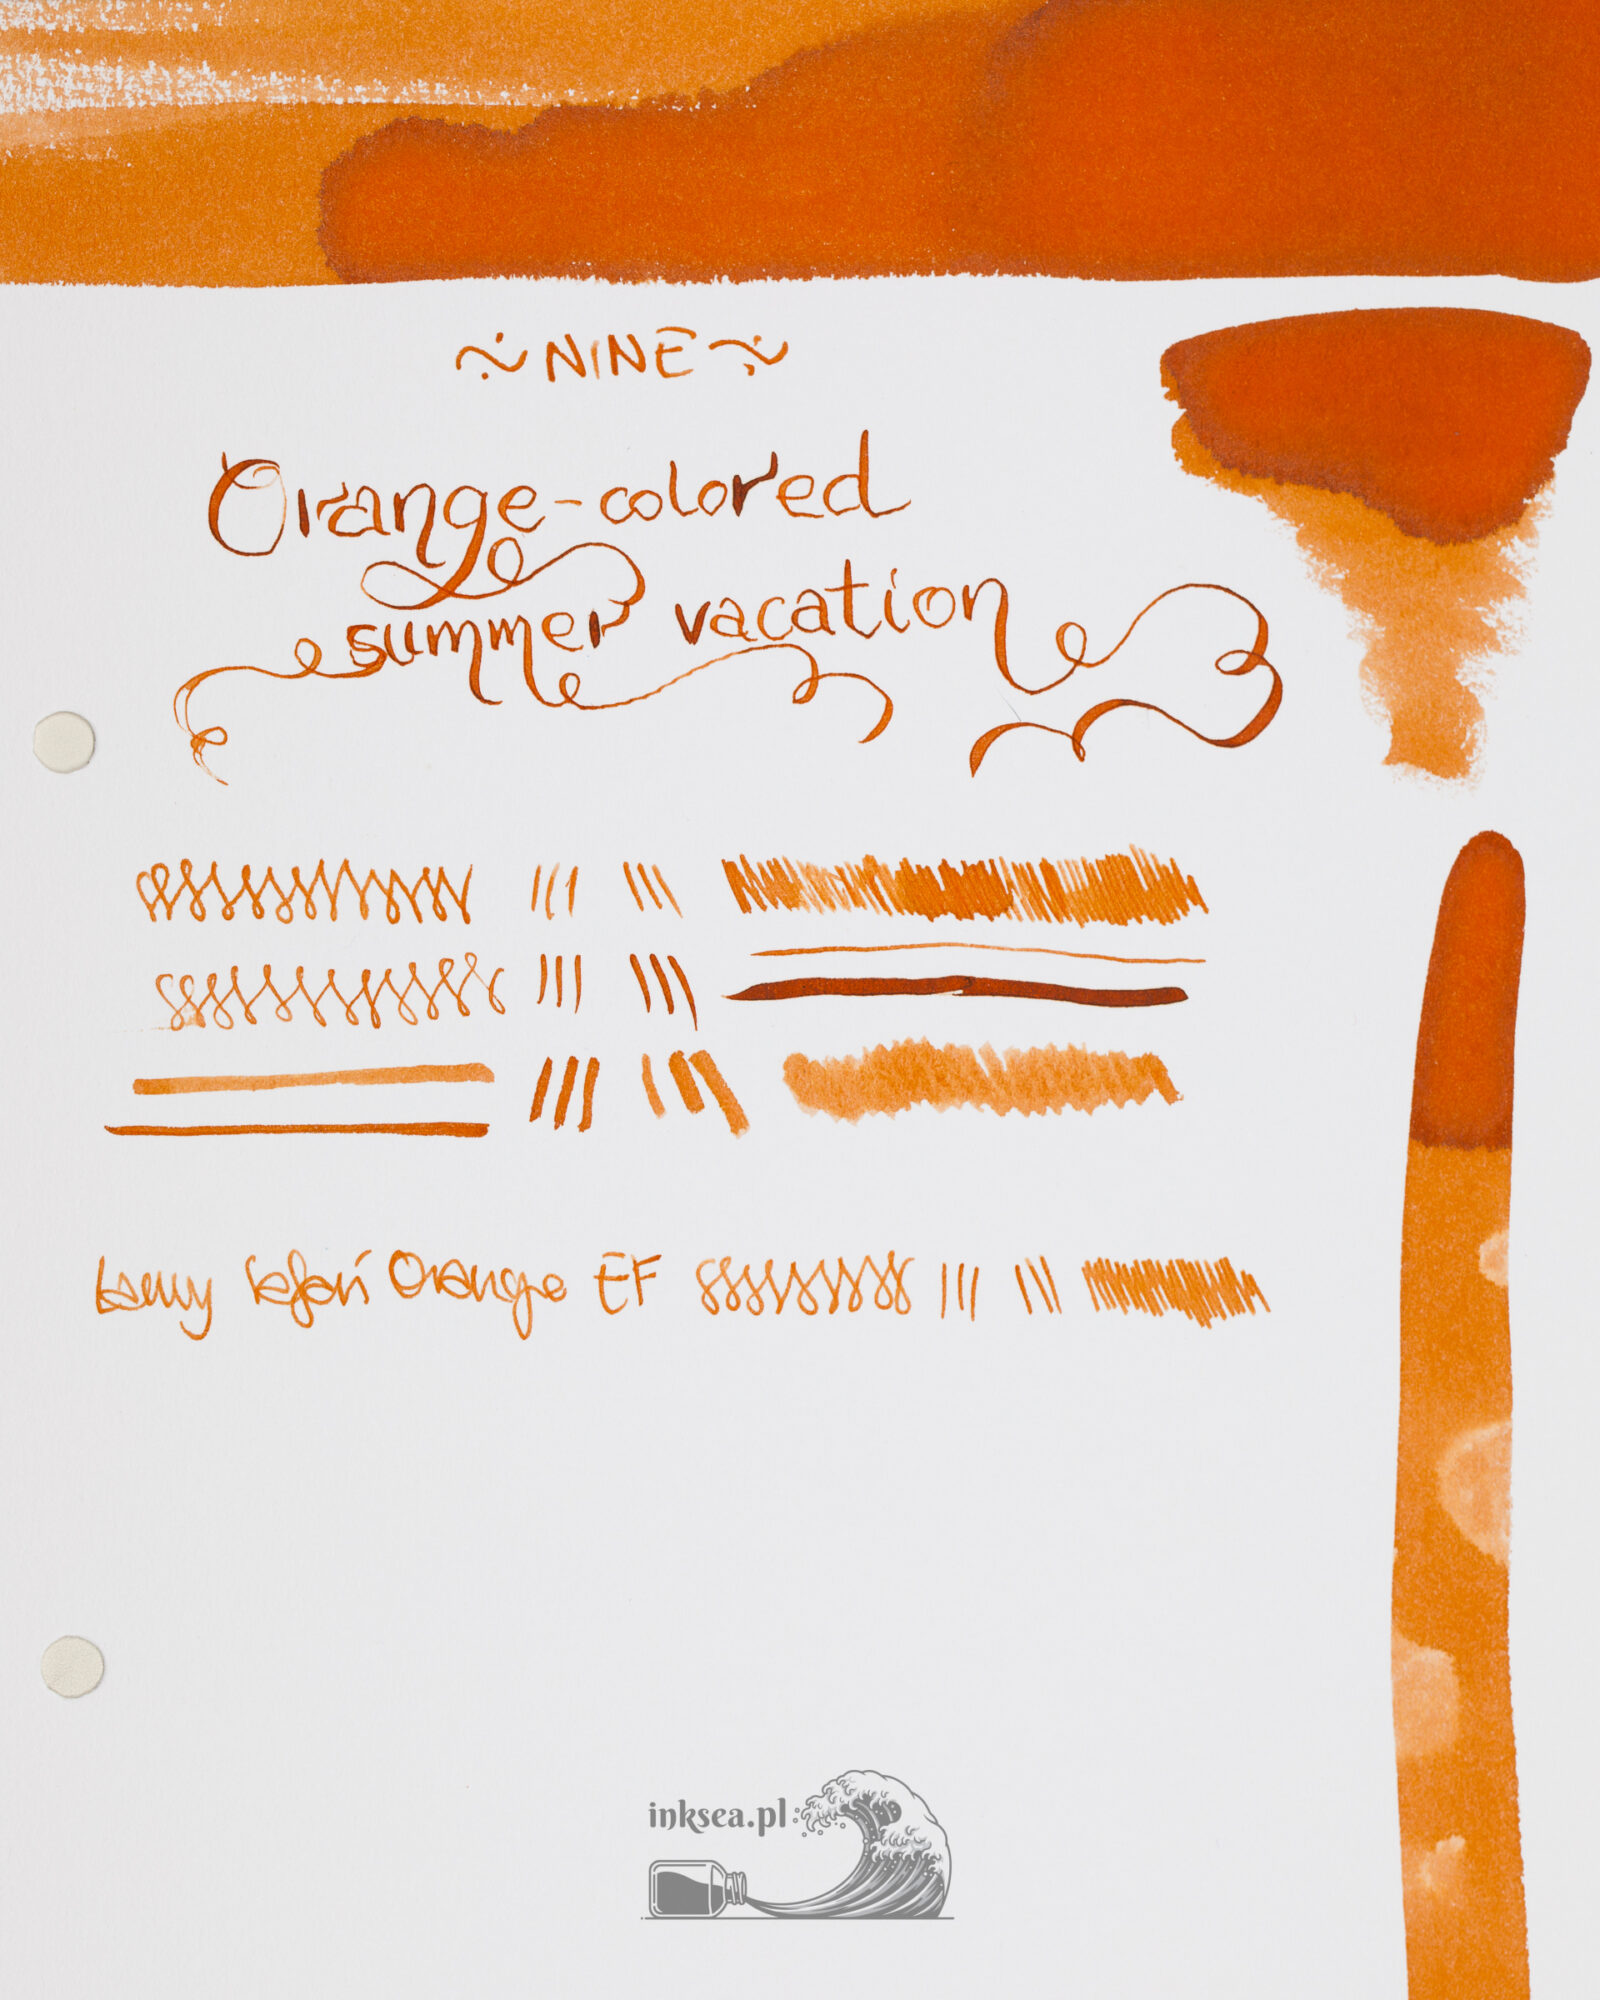 ~ NINE ~
Orange-colored
summer vacation
Lamy Safari Orange EF
inksea.pl